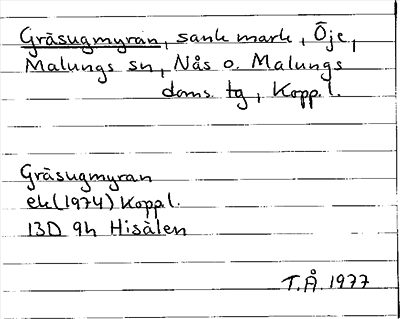 Gråsugmyran, sank mark, Öje,
Malungs sn, Nås o. Malungs
doms. tg, Kopp. l.
Gråsugmyran
ek (1974) Kopp l.
13D 9h Hisålen
T.Å. 1977